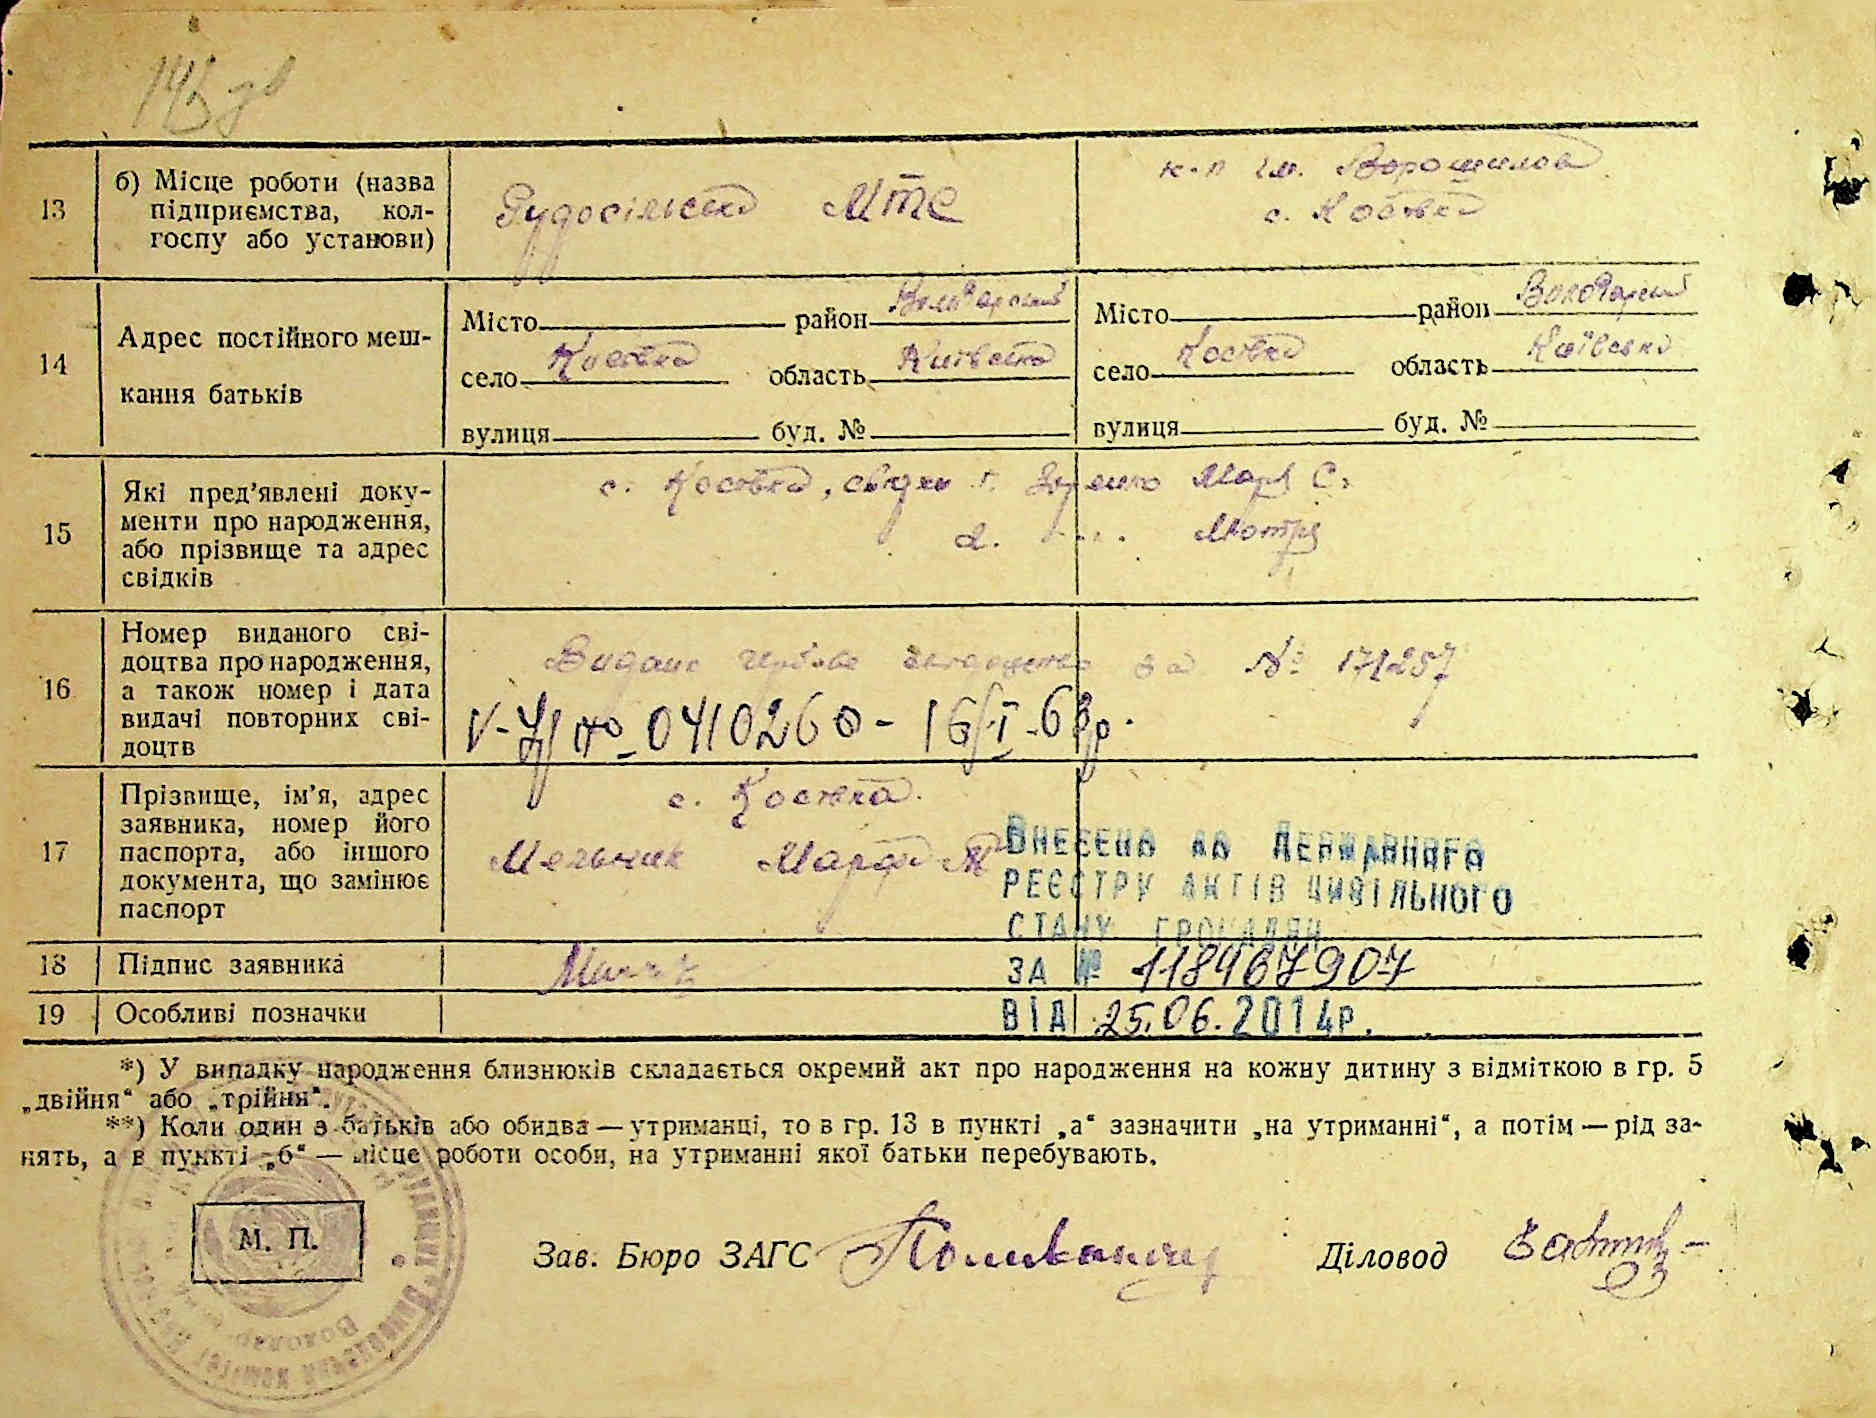 13
б) Місце роботи (назва
підприємства, кол-
госпу або установи)
Рудосільська МТС
к-п ім. Ворошилова
с. Косівка
14
Адрес постійного меш-
кання батьків
Місто район Володарський
село Косівка область Київська
вулиця буд. №
Місто район Володарський
село Косівка область Київська
вулиця буд. №
15
Які пред'явлені доку-
менти про народження,
або прізвище та адрес
свідків
с. Косівка, свідки 1. Марія С.
2. Мотря
16
Номер виданого сві-
доцтва про народження,
а також номер і дата
видачі повторних сві-
доцтв
Видано свідоцтво за № 171257
V-УР № 0410260 - 16/I-63р.
17
Прізвище, ім'я, адрес
заявника, номер його
паспорта, або іншого
документа, що замінює
паспорт
с. Косівка.
Мельник Марфа
ВНЕСЕНО ДО ДЕРЖАВНОГО
РЕЄСТРУ АКТІВ ЦИВІЛЬНОГО
СТАНУ ГРОМАДЯН
18
Підпис заявника
ЗА № 118467907
19
Особливі позначки
ВІД 25.06.2014р.
*) У випадку народження близнюків складається окремий акт про народження на кожну дитину з відміткою в гр. 5
„двійня“ або „трійня“.
**) Коли один з батьків або обидва — утриманці, то в гр. 13 в пункті „а“ зазначити „на утриманні“, а потім — рід за-
нять, а в пункті „б“ — місце роботи особи, на утриманні якої батьки перебувають.
М. П.
Зав. Бюро ЗАГС
Діловод